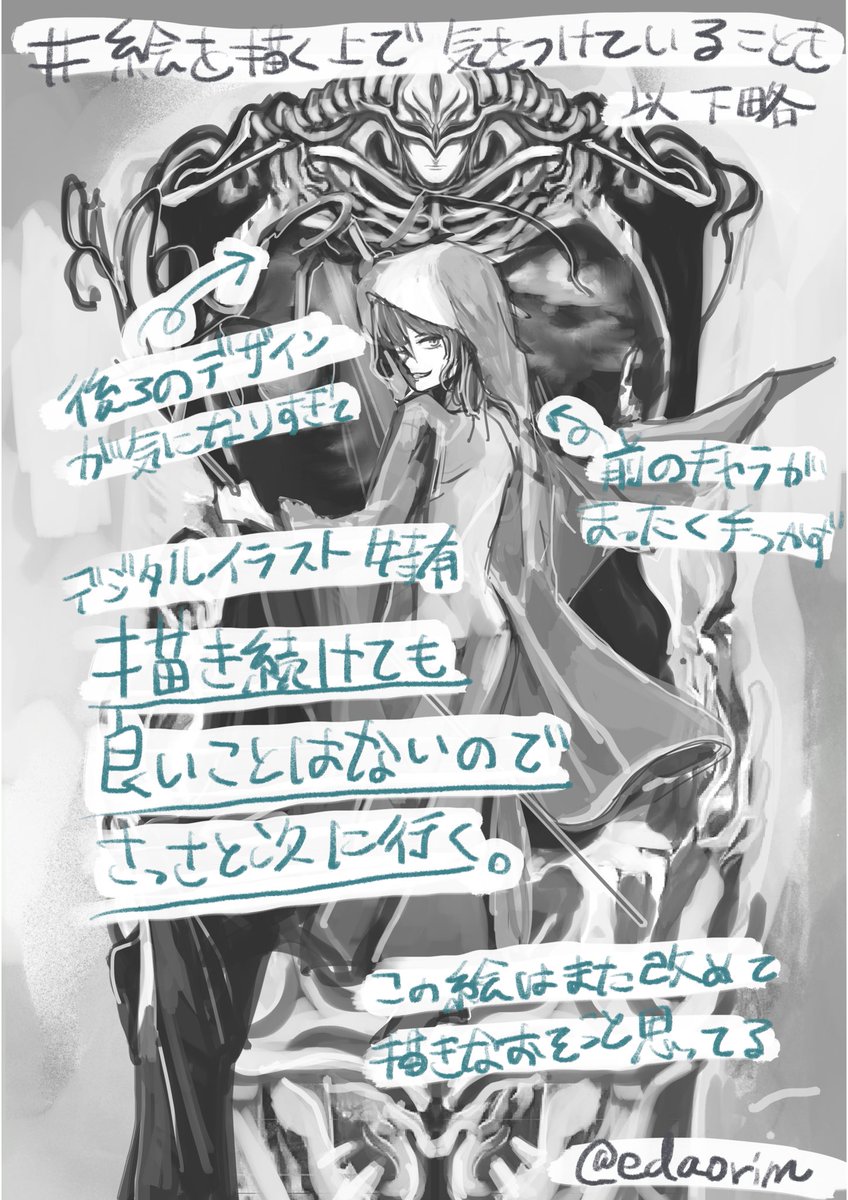 #絵を描く上で気をつけていることを
以下略
後ろのデザイン
が気になりすぎて
前のキャラが
まったく手つかず
デジタルイラスト特有
描き続けても
良いことはないので
さっさと次に行く。
この絵はまた改めて
描きなおそうと思ってる
@edaorim